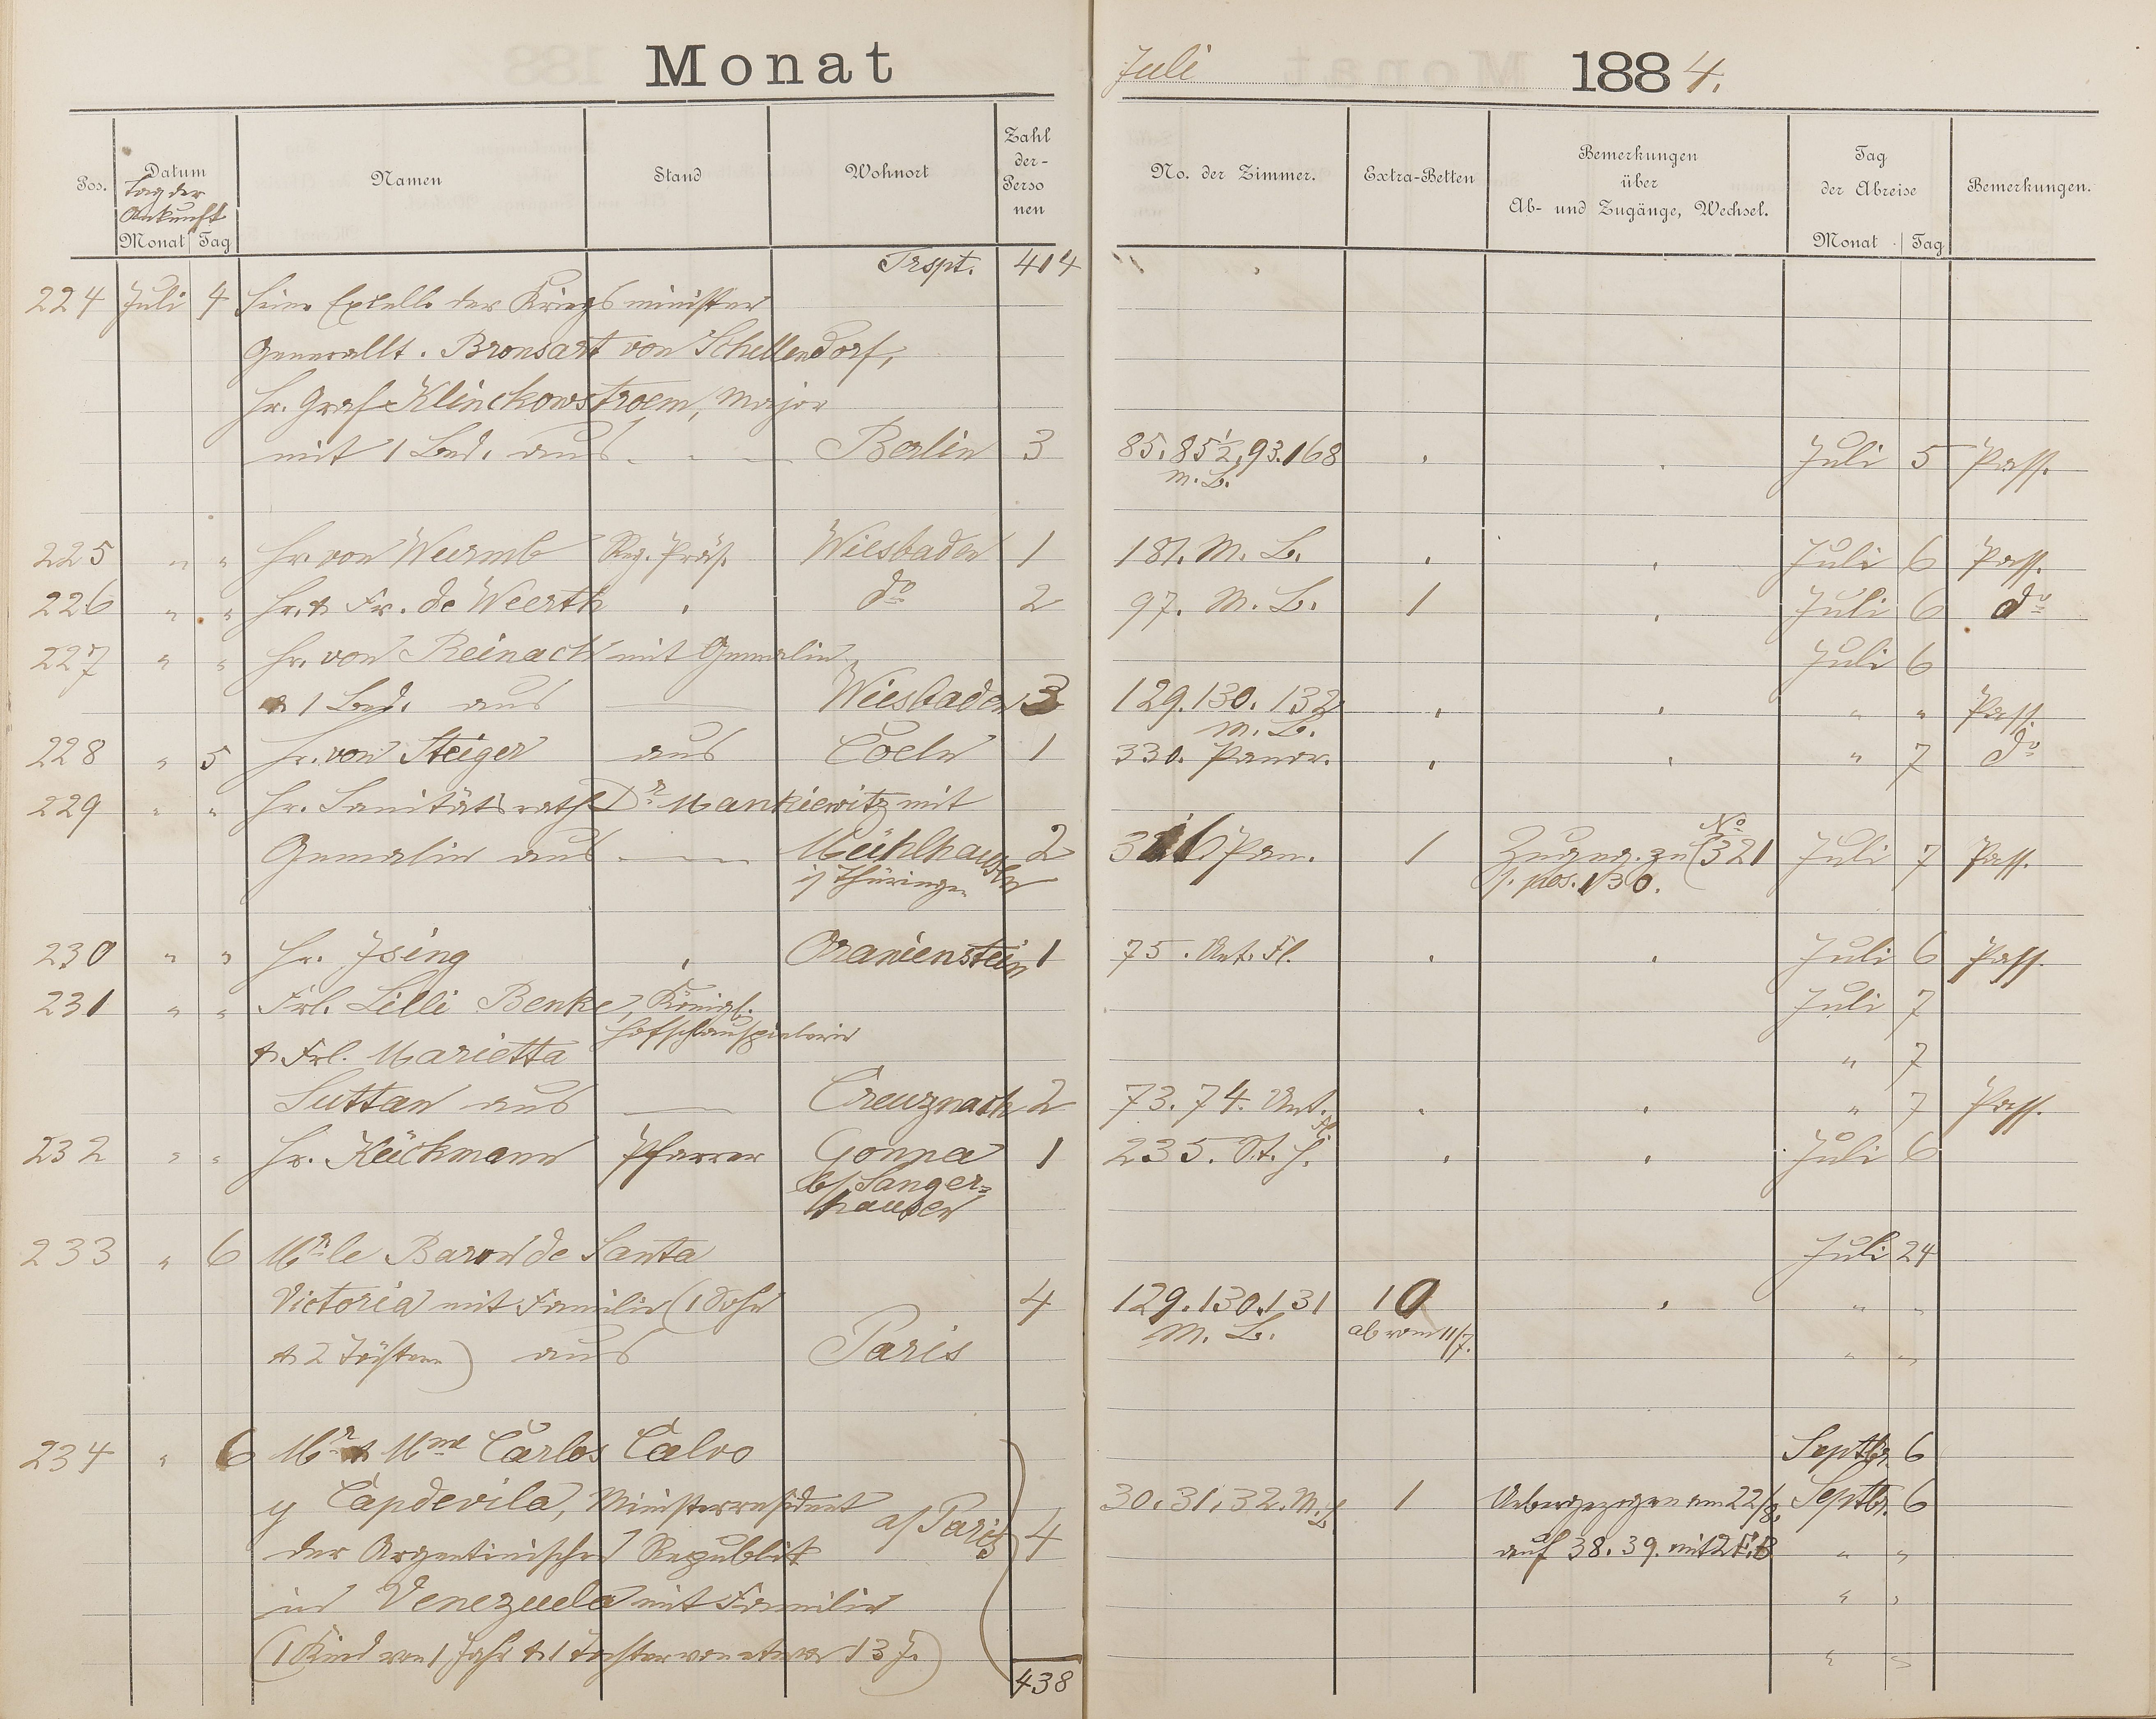 Monat Juli 1884.
Pos. Datum Tag der Ankunft Monat Tag Namen Stand Wohnort Zahl der- Perso nen No. der Zimmer. Extra-Betten Bemerkungen über Ab- und Zugänge, Wechsel. Tag der Abreise Monat Tag Bemerkungen.
Trspt. 414
224 Juli 4 Seine Excelle der Kriegsminister
Generallt. Bronsart von Schellendorf,
Hr. Graf Klinckowstroem, Major
mit 1 Bed. aus Berlin 3 85. 85½, 93. 168 m. B. Juli 5 Pass.
225 " " Hr. von Wurmb Reg. Präs. Wiesbaden 1 181. M. B. Juli 6 Pass.
226 " " Hr. & Fr. de Weerth do 2 97. M. B. 1 Juli 6 do
227 " " Hr. von Reinach mit Gemalin Juli 6
& 1 Bed. aus Wiesbaden 3 129. 130. 132 M. B. " " Pass.
228 " 5 Hr. von Steiger aus Coeln 1 330. Panor. " 7 do
229 " " Hr. Sanitätsrath Dr Mankiewitz mit
Gemalin aus Mühlhausen i/ Thüringen 2 316 Pan. 1 Zugng. zu No 321 s. pos. 130. Juli 7 Pass.
230 " " Hr. Ising Oranienstein 1 75. Unt. Fl. Juli 6 Pass.
231 " " Frl. Lilli Benke, Königl. Hofschauspielerin Juli 7
& Frl. Marietta " 7
Suttan aus Creuznach 2 73. 74. Unt. Fl. " 7 Pass.
232 " " Hr. Kückmann Pfarrer Gonna b/ Sanger= hausen 1 235. St. H. Juli 6
233 " 6 Mr le Baron de Santa Juli 24
Victoria mit Familie (1 Sohn 4 129. 130. 131 M. B. 10 ab vom 11/7. " "
& 2 Töchtern) aus Paris " "
234 " 6 Mr & Mme Carlos Calvo Septbr. 6
y Capdevila, Ministerresident a/ Paris 4 30. 31. 32. M. B. 1 Uebergezogen am 22/8. Septbr. 6
der Argentinischen Republik auf 38. 39. mit 2 E. B " "
in Venezuela mit Familie " "
(1 Kind von 1 Jahr & 1 Tochter von etwa 13 J.) " "
438